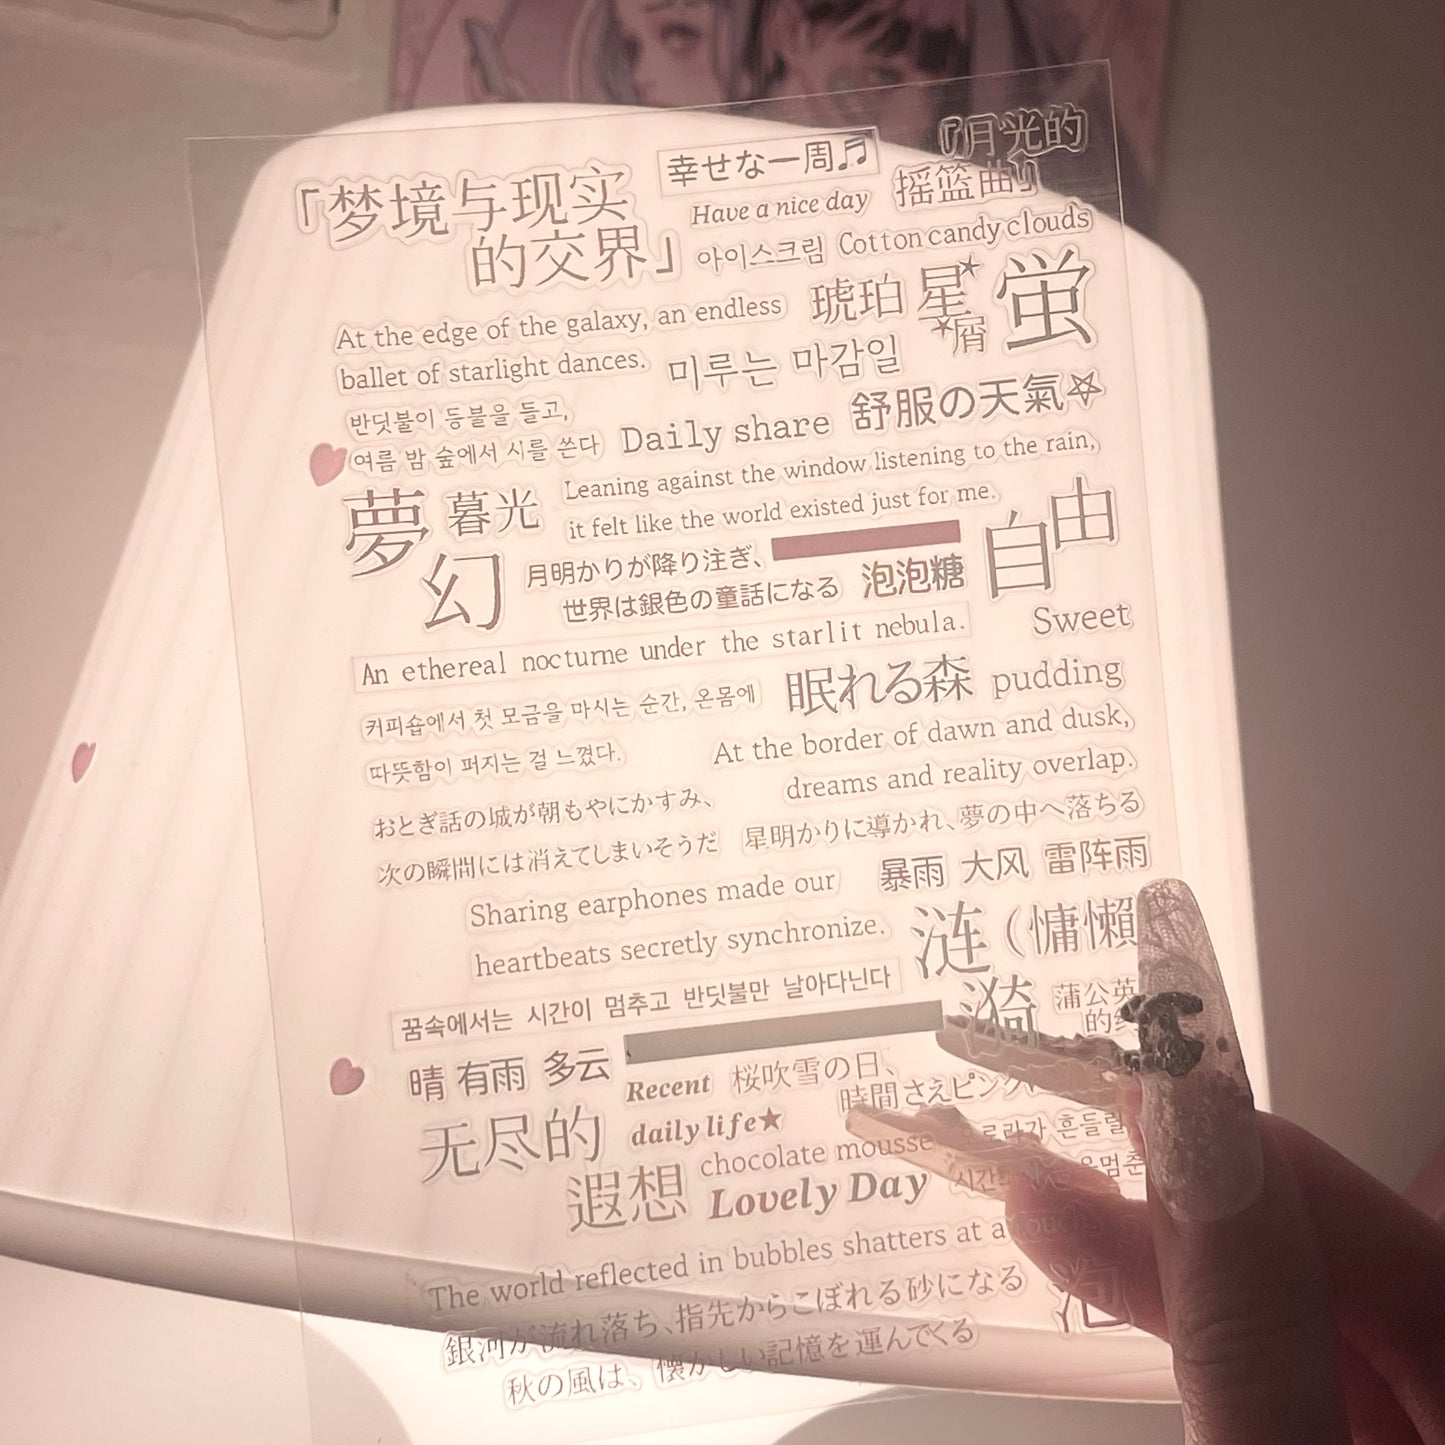 「梦境与现实
的交界」
幸せな一周♫
Have a nice day
『月光的
摇篮曲』
아이스크림
Cotton candy clouds
At the edge of the galaxy, an endless
ballet of starlight dances.
琥珀
星屑
蛍
미루는 마감일
반딧불이 등불을 들고,
여름 밤 숲에서 시를 쓴다
Daily share
舒服の天氣☆
夢幻
暮光
Leaning against the window listening to the rain,
it felt like the world existed just for me.
月明かりが降り注ぎ、
世界は銀色の童話になる
泡泡糖
自由
An ethereal nocturne under the starlit nebula.
Sweet
pudding
커피숍에서 첫 모금을 마시는 순간, 온몸에
따뜻함이 퍼지는 걸 느꼈다.
眠れる森
At the border of dawn and dusk,
dreams and reality overlap.
おとぎ話の城が朝もやにかすみ、
次の瞬間には消えてしまいそうだ
星明かりに導かれ、夢の中へ落ちる
暴雨 大风 雷阵雨
Sharing earphones made our
heartbeats secretly synchronize.
涟漪
(慵懶
蒲公英
的约
꿈속에서는 시간이 멈추고 반딧불만 날아다닌다
晴 有雨 多云
Recent
daily life★
桜吹雪の日、
時間さえピンク
无尽的
遐想
chocolate mousse
Lovely Day
오로라가 흔들릴
The world reflected in bubbles shatters at a touch
泡
銀河が流れ落ち、指先からこぼれる砂になる
秋の風は、懐かしい記憶を運んでくる